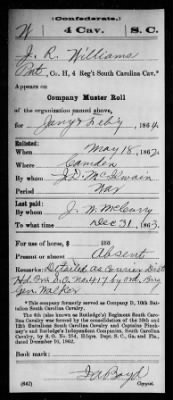 (Confederate.)
W 4 Cav. S. C.
J. R. Williams
Pvt, Co. H, 4 Reg't South Carolina Cav.*
Appears on
Company Muster Roll
of the organization named above,
for Jany & Feby, 1864.
Enlisted:
When May 18, 1862.
Where Camden
By whom J. D. McIlwain
Period War
Last paid:
By whom J. N. McCurry
To what time Dec 31, 1863.
For use of horse, $ 100
Present or absent Absent
Remarks: Detailed as Courier Dist
Hd. Qrs S.O. No. 417 by ord. Brig
Gen. Walker
*This company formerly served as Company D, 10th Battalion South Carolina Cavalry.
The 4th (also known as Rutledge's) Regiment South Carolina Cavalry was formed by the consolidation of the 10th and 12th Battalions South Carolina Cavalry and Captains Pinckney's and Rutledge's Independent Companies, South Carolina Cavalry, by S. O., No. 252, Hdqrs. Dept. S. C., Ga. and Fla., dated December 16, 1862.
Book mark:
(642) Boyd Copyist.